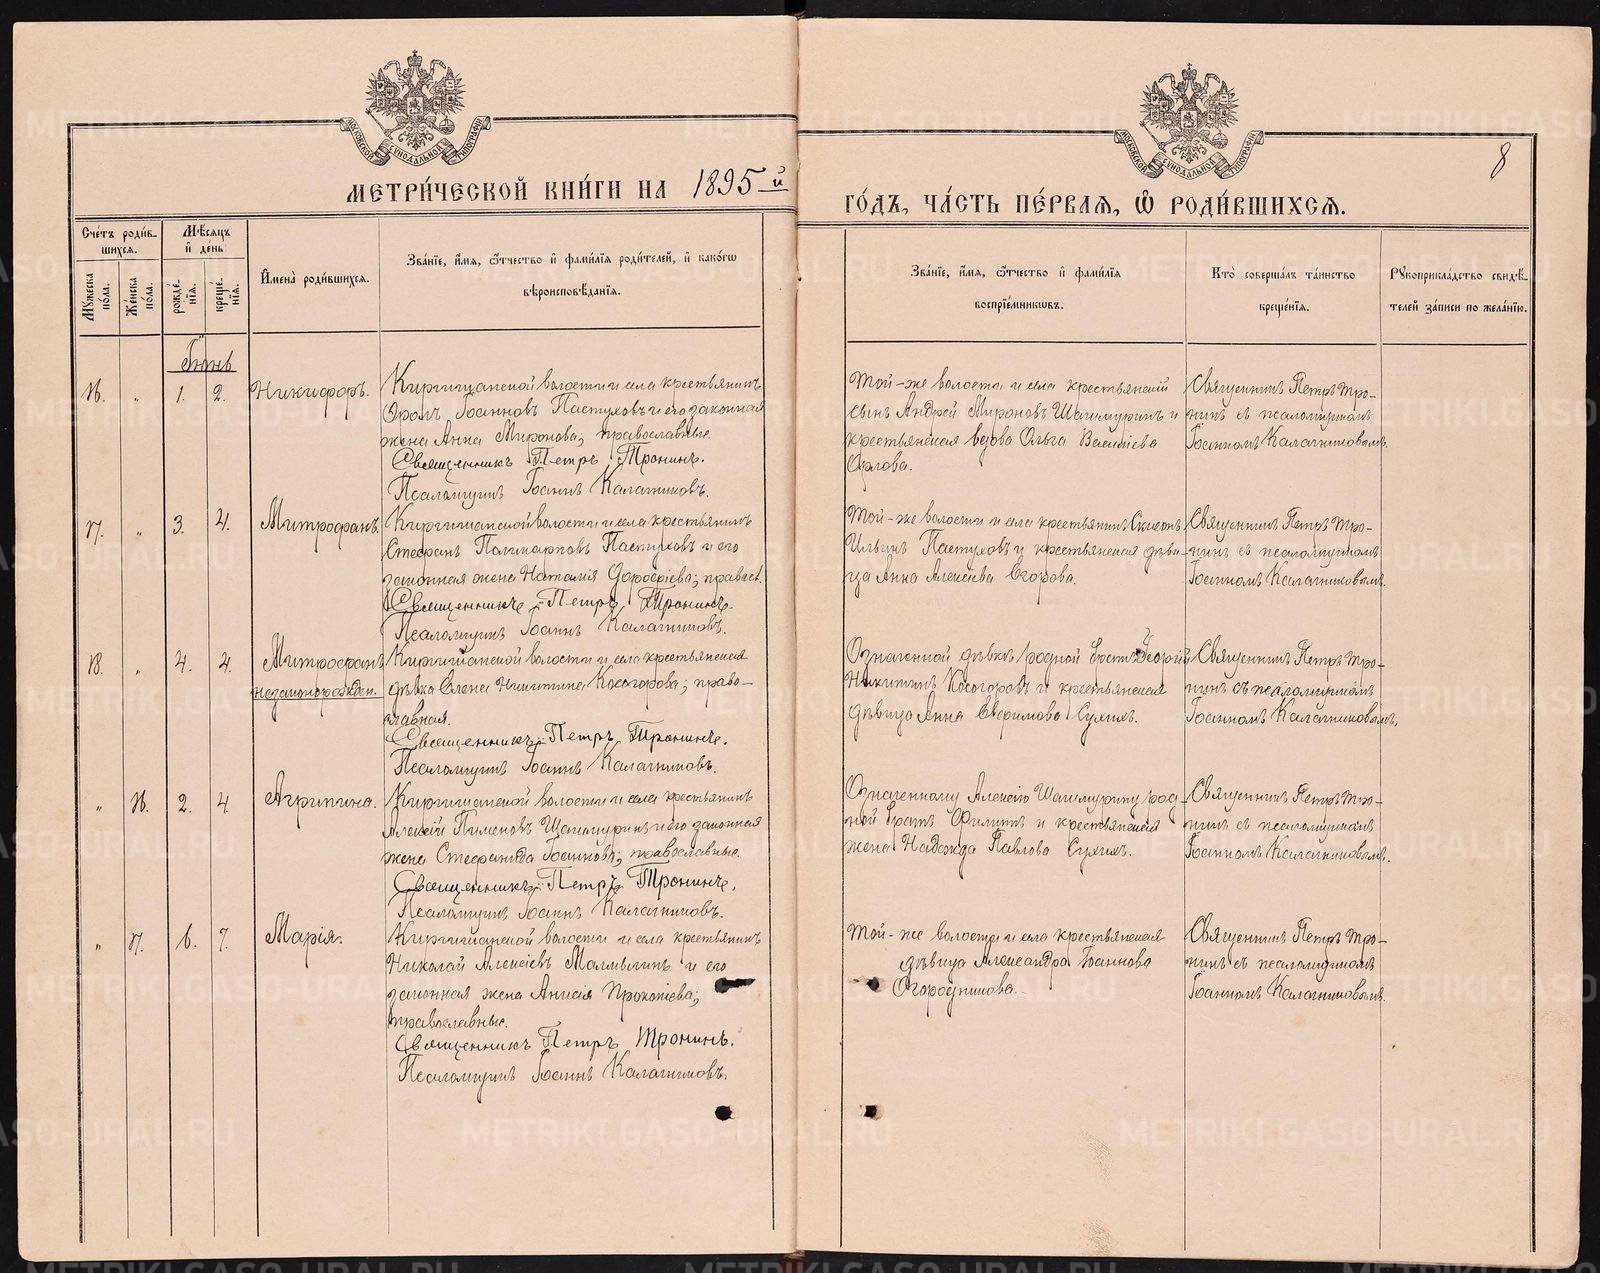 МОСКОВСКОЙ СѴНОДАЛЬНОЙ ТИПОГРАФІИ
МОСКОВСКОЙ СѴНОДАЛЬНОЙ ТИПОГРАФІИ
8
МЕТРИ́ЧЕСКОЙ КНИ́ГИ НА 1895-й
ГО́ДЪ, ЧА́СТЬ ПЕ́РВАЯ, Ѽ РОДИ́ВШИХСЯ.
Сче́тъ роди́в-
шихся.
Мѣсяцъ
и де́нь
Му́жеска по́ла.
Же́нска по́ла.
рожде́-
нія.
креще́-
нія.
Имена̀ роди́вшихся.
Зва́ніе, и́мя, ѻ́тчество и фами́лія роди́телей, и како́гѡ
вѣроисповѣ́данія.
Зва́ніе, и́мя, ѻ́тчество и фами́лія
воспріе́мникѡвъ.
Кто̀ соверша́лъ та́инство
креще́нія.
Рукоприкла́дство свидѣ́-
телей за́писи по жела́нію.
Іюнь
16. „ 1. 2. Никифоръ.
Киргишанской волости и села крестьянинъ
Іоанновъ Пастуховъ и его законная
жена Анна Миронова; православные.
Священникъ Петръ Тронинъ.
Псаломщикъ Іоаннъ Калашниковъ.
Той-же волости и села крестьянскій
сынъ Андрей Мироновъ Шашмуринъ и
крестьянская вдова Ольга Васильева
Орлова.
Священникъ Петръ Тро-
нинъ съ псаломщикомъ
Іоанномъ Калашниковымъ.
17. „ 3. 4. Митрофанъ
Киргишанской волости и села крестьянинъ
Стефанъ Поликарповъ Пастуховъ и его
законная жена Наталія Дорофіева; правосл.
Священникъ Петръ Тронинъ.
Псаломщикъ Іоаннъ Калашниковъ.
Той-же волости и села крестьянинъ
Ильинъ Пастуховъ и крестьянская дѣви-
ца Анна Алексіева Егорова.
Священникъ Петръ Тро-
нинъ съ псаломщикомъ
Іоанномъ Калашниковымъ.
18. „ 4. 4. Митрофанъ
незаконорожден.
Киргишанской волости и села крестьянская
дѣвка Елена Никитина Косогорова; право-
славная.
Священникъ Петръ Тронинъ.
Псаломщикъ Іоаннъ Калашниковъ.
Означенной дѣвкѣ родной братъ Георгій
Никитинъ Косогоровъ и крестьянская
дѣвица Анна Евфимова Сухихъ.
Священникъ Петръ Тро-
нинъ съ псаломщикомъ
Іоанномъ Калашниковымъ.
„ 16. 2. 4 Агрипина.
Киргишанской волости и села крестьянинъ
Алексѣй Шашмуринъ и его законная
жена Стефанида Іоаннова; православные.
Священникъ Петръ Тронинъ.
Псаломщикъ Іоаннъ Калашниковъ.
Означенному Алексію Шашмурину род-
ной братъ Филиппъ и крестьянская
жена Надежда Павлова Сухихъ.
Священникъ Петръ Тро-
нинъ съ псаломщикомъ
Іоанномъ Калашниковымъ.
„ 17. 6. 7. Марія.
Киргишанской волости и села крестьянинъ
Николай Алексіевъ Малмыгинъ и его
законная жена Анисія Прокопіева;
православные.
Священникъ Петръ Тронинъ.
Псаломщикъ Іоаннъ Калашниковъ.
Той-же волости и села крестьянская
дѣвица Александра Іоаннова
Огородникова.
Священникъ Петръ Тро-
нинъ съ псаломщикомъ
Іоанномъ Калашниковымъ.
METRIKI.GASO-URAL.RU